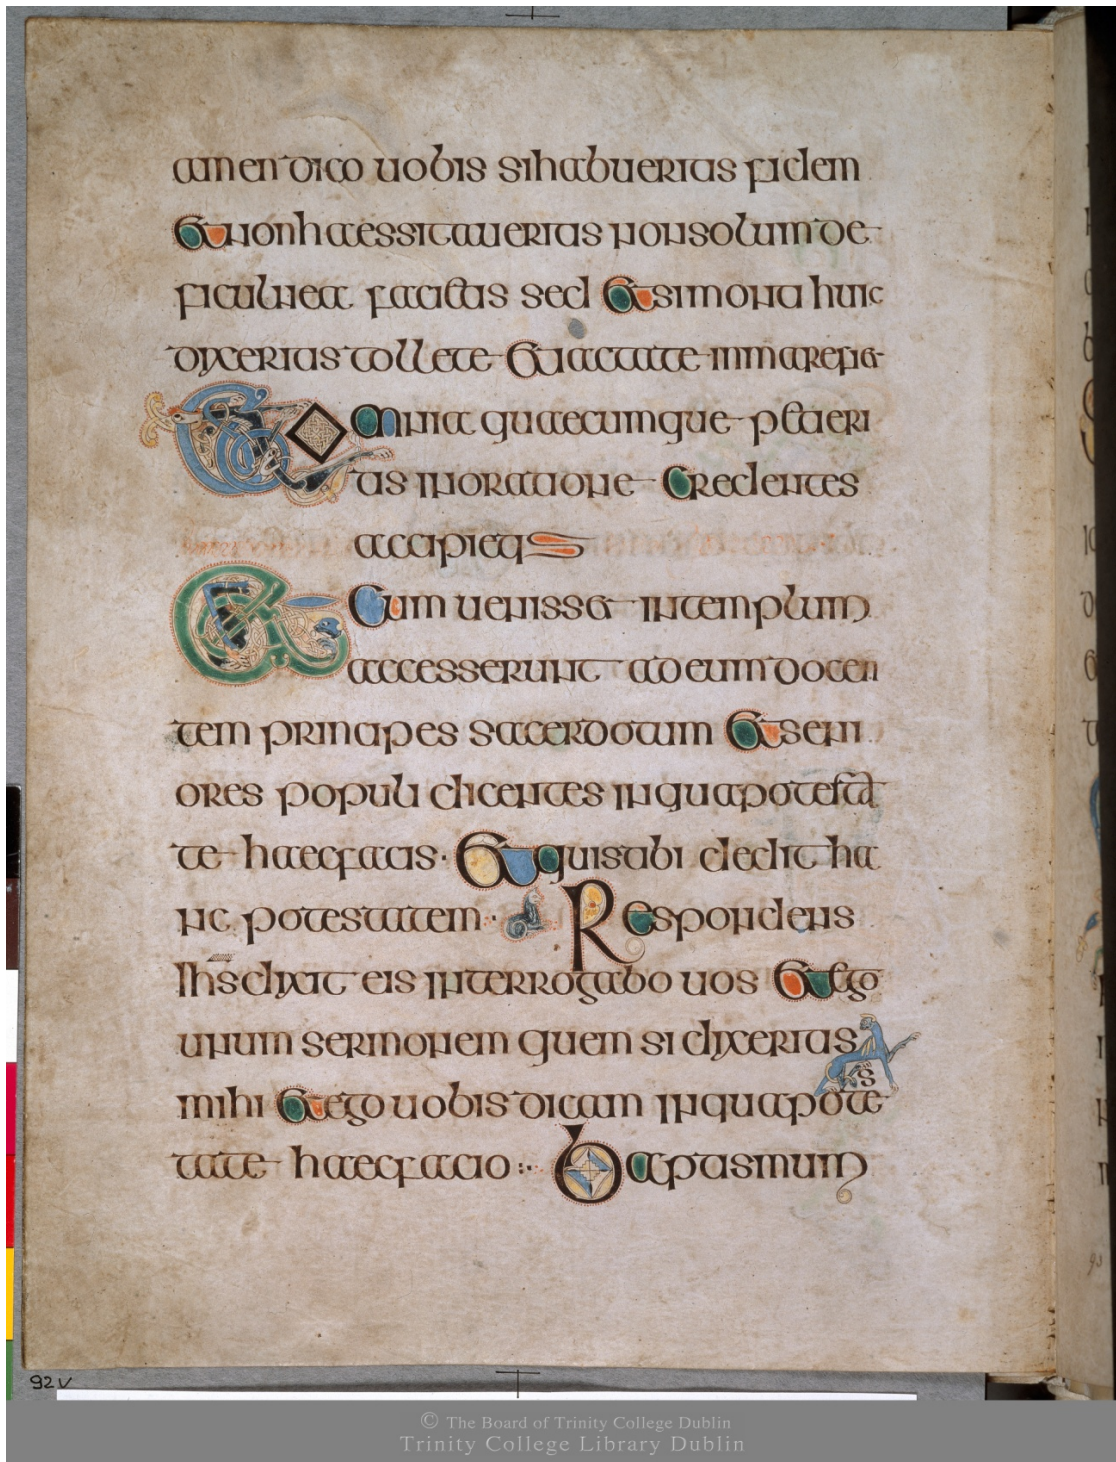 amen dico uobis si habueritis fidem
et non haessitaueritis non solum de
ficulnea facietis sed et si monti huic
dixeritis tollete et iactate in mare fiet
et omnia quaecumque petieri
tis in oratione credentes
accipietis
et cum uenisset in templum
accesserunt ad eum docen
tem principes sacerdotum et seni
ores populi dicentes in qua potesta
te haec facis · et quis tibi dedit ha
nc potestatem · Respondens
ihs dixit eis interrogabo uos et ego
unum sermonem quem si dixeritis
mihi et ego uobis dicam in qua potes
tate haec facio :· baptismum
92v
© The Board of Trinity College Dublin
Trinity College Library Dublin